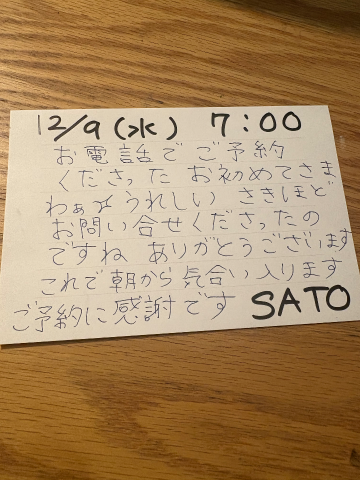 12/9(水) 7:00
お電話でご予約
くださった お初めてさま
わぁ♡うれしい さきほど
お問い合せくださったの
ですね ありがとうございます
これで朝から気合い入ります
ご予約に感謝です SATO